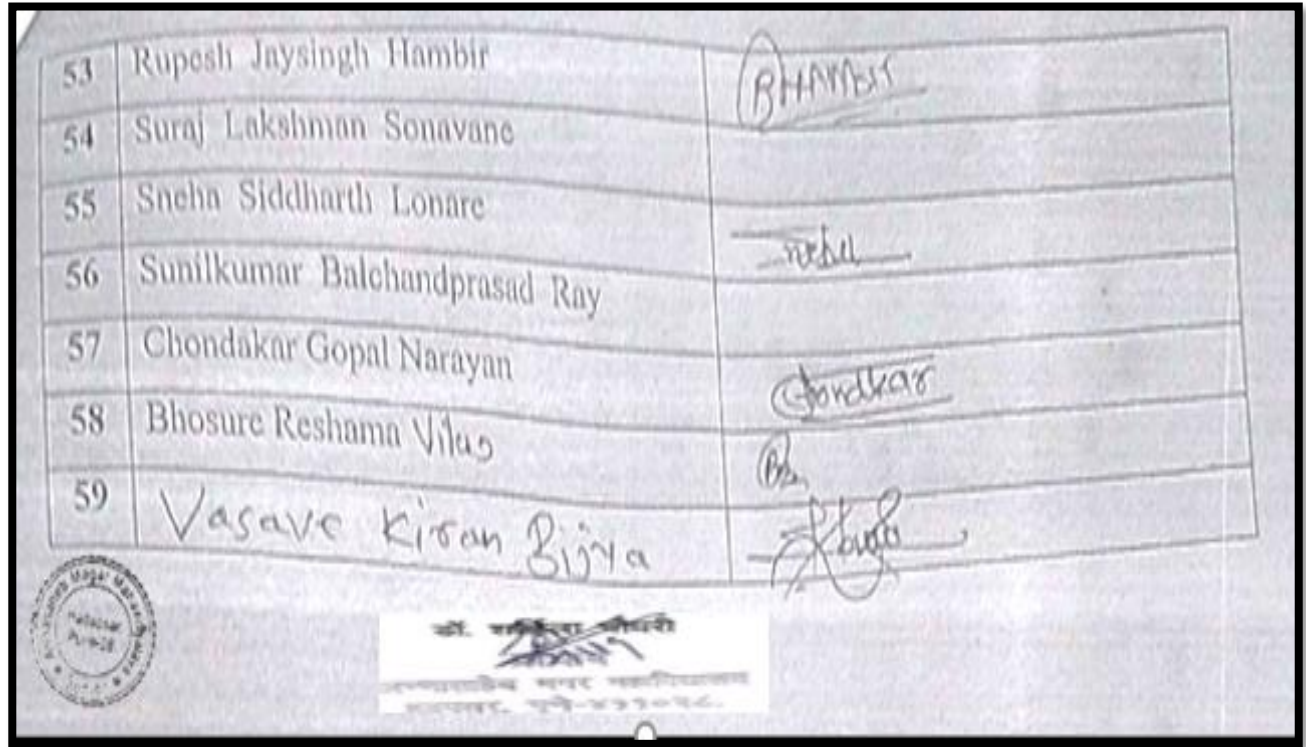 53 Rupesh Jaysingh Hambir RHAMBIR
54 Suraj Lakshman Sonavane
55 Sneha Siddharth Lonare
56 Sunilkumar Balchandprasad Ray
57 Chondakar Gopal Narayan Chondkar
58 Bhosure Reshama Vilas
59 Vasave Kiran Bijya
Magar Mahavidyalaya
डॉ. चौधरी
अण्णासाहेब मगर महाविद्यालय
हडपसर, पुणे-४११०२८.